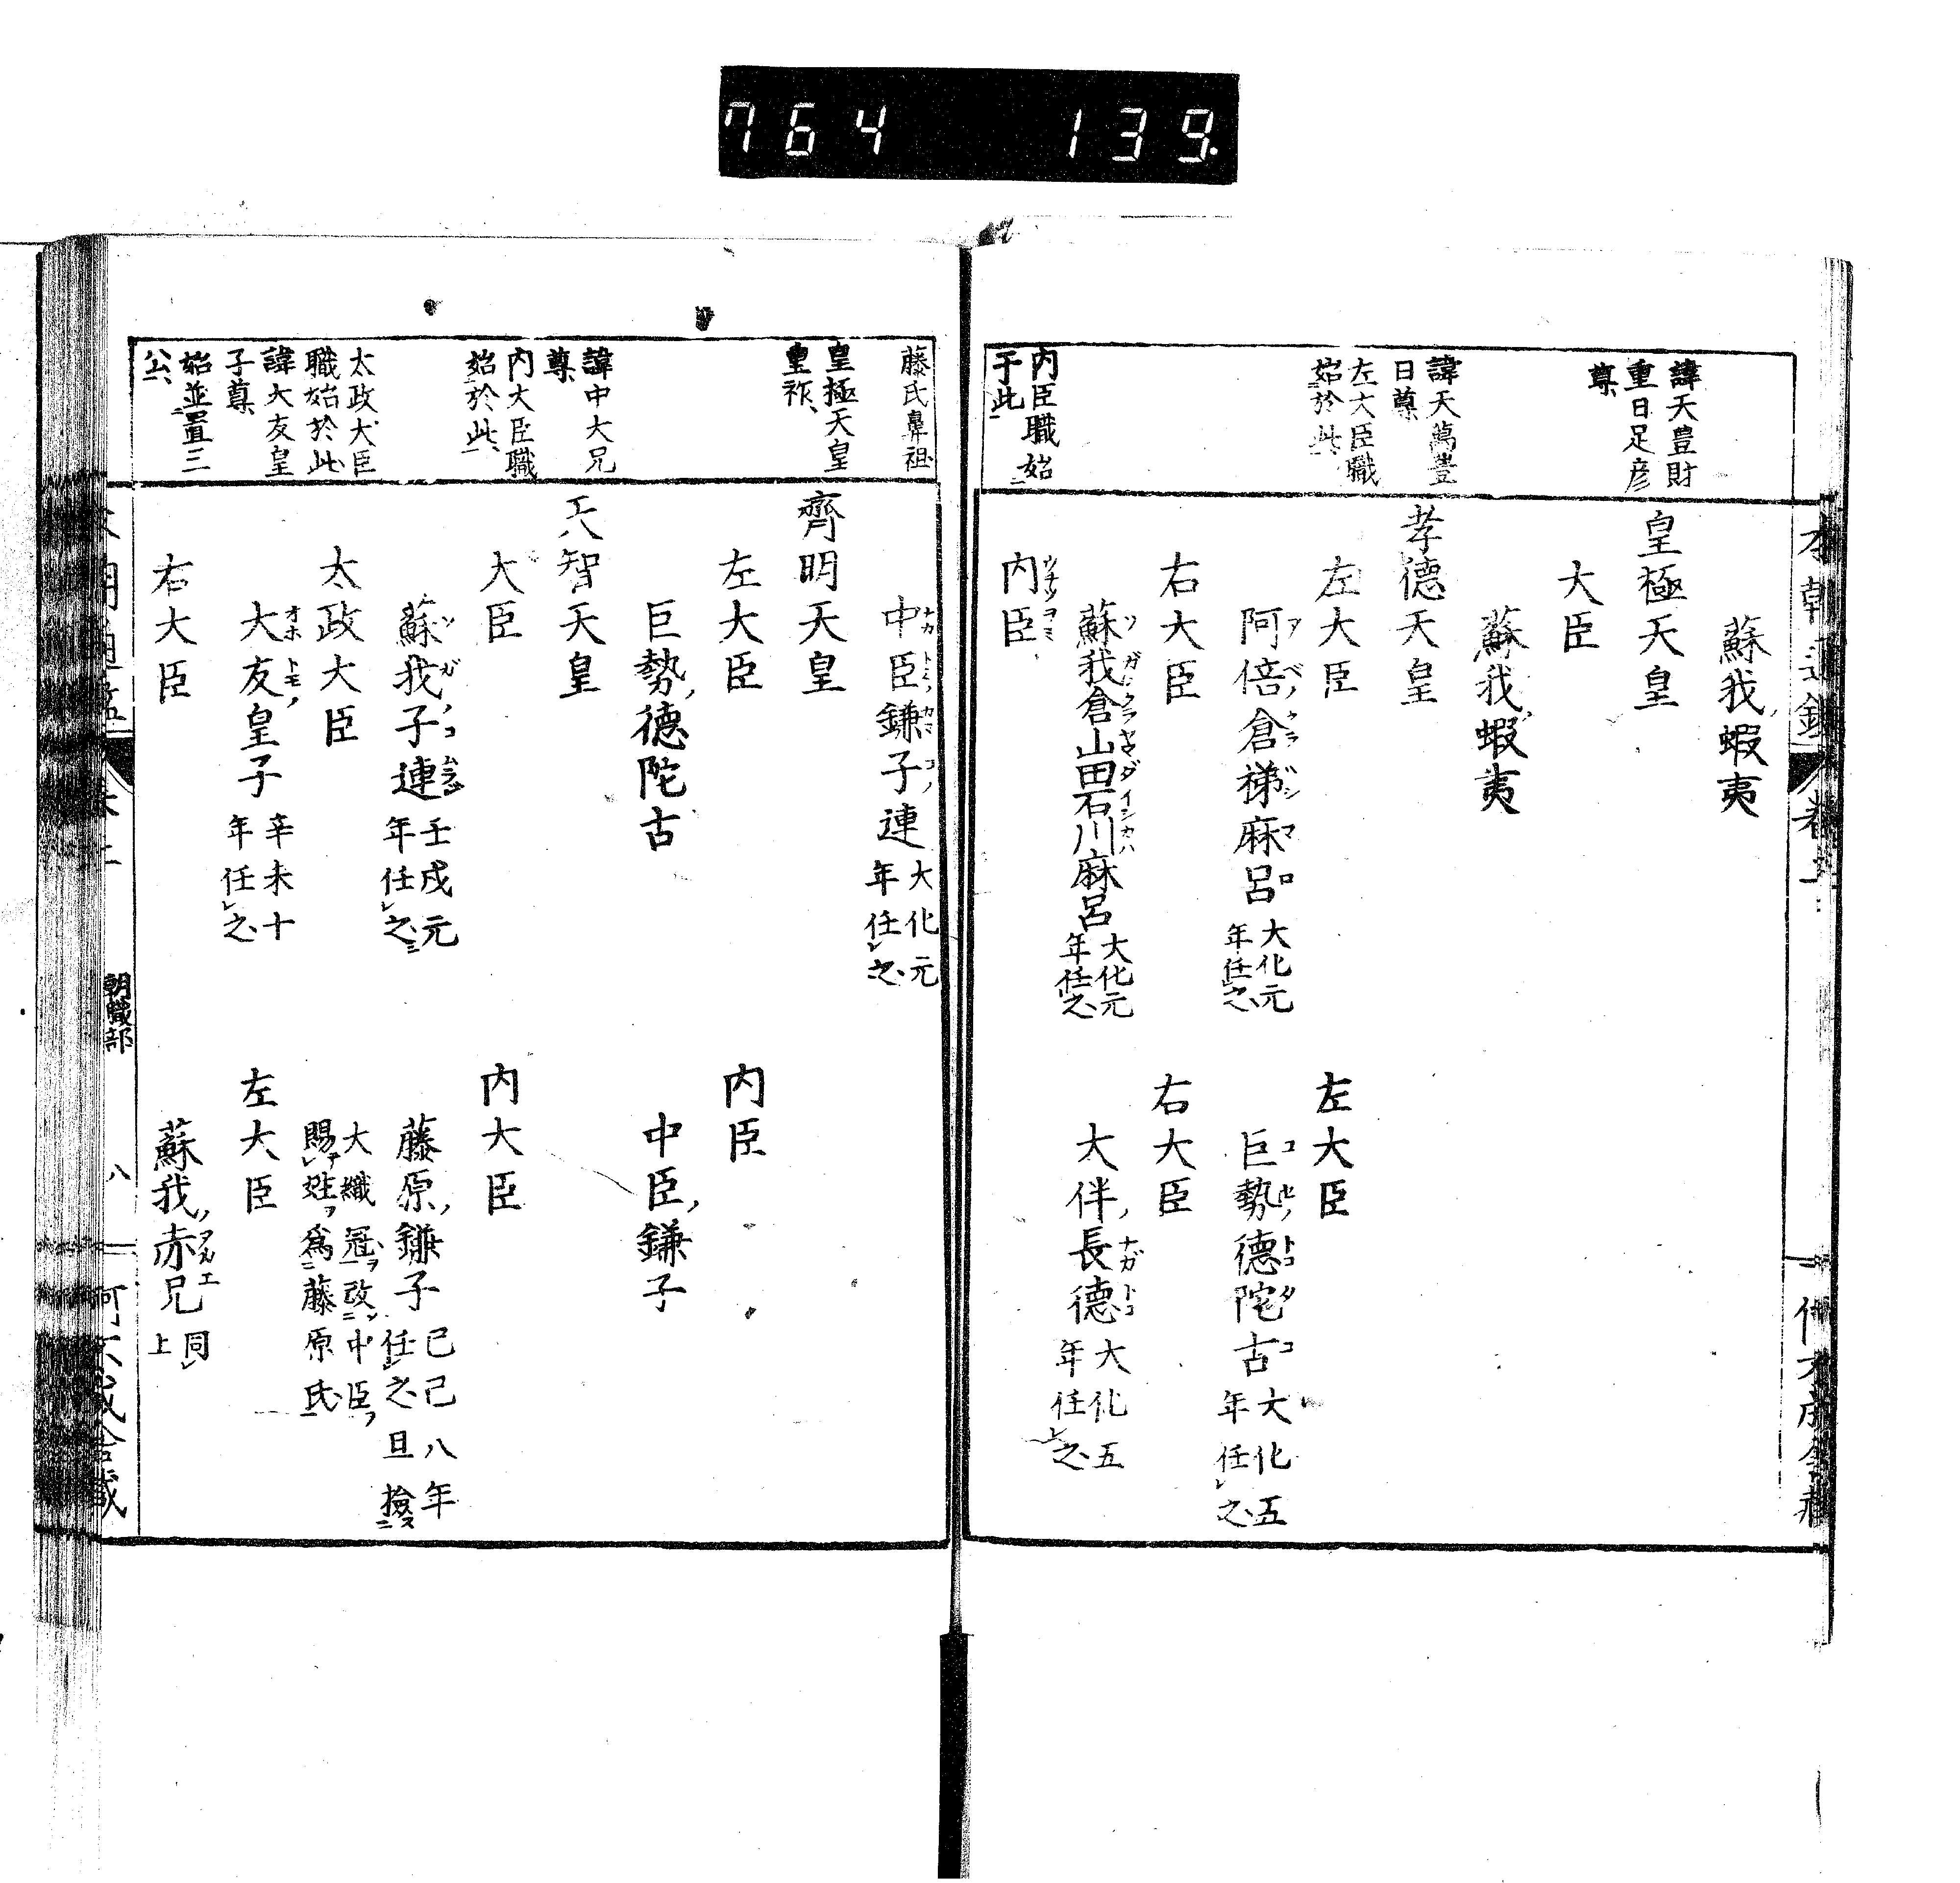 764 139.
諱天豊財
重日足彦
尊
諱天萬豊
日尊
左大臣職
始於此
内臣職始
于此
蘇我蝦夷
皇極天皇
大臣
蘇我蝦夷
孝德天皇
左大臣
左大臣
阿倍倉梯麻呂 大化元年任之
巨勢德陀古 大化五年任之
右大臣
右大臣
蘇我倉山田石川麻呂 大化元年任之
大伴長德 大化五年任之
内臣
藤氏鼻祖
皇極天皇
重祚
諱中大兄
尊
内大臣職
始於此
太政大臣
職始於此
諱大友皇
子尊
始並置三
公
中臣鎌子連 大化元年任之
齊明天皇
左大臣
内臣
巨勢德陀古
中臣鎌子
天智天皇
大臣
内大臣
蘇我子連 壬戌元年任之
藤原鎌子 己巳八年任之且授
大織冠改中臣
賜姓為藤原氏
太政大臣
大友皇子 辛未十年任之
左大臣
蘇我赤兄 同上
右大臣
朝職部
八